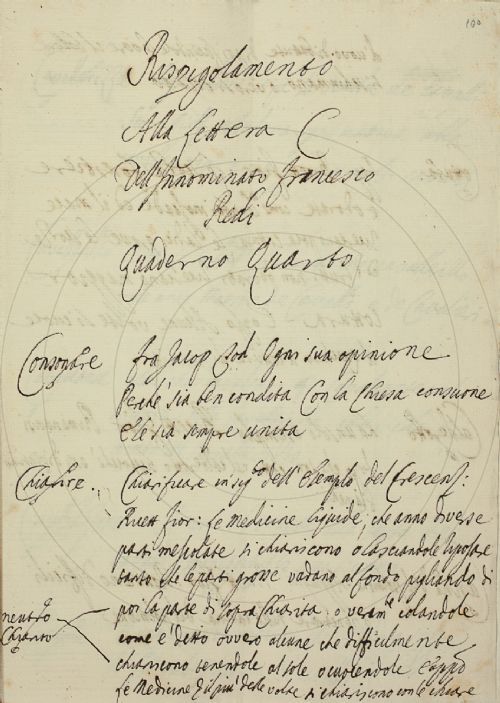 100
Rispigolamento
Alla Lettera C
Dell'Innominato Francesco
Redi
Quaderno Quarto
Consonare fra Jacop Tod. Ogni sua opinione
Perche sia ben condita Con la Chiesa consuone
E le sia sempre unita
Chiarire. Chiarificare in sig.to dell'Esempio del Crescenz:
Ricett fior: Le Medicine liquide, che anno diverse
parti mescolate si chiariscono o lasciandole riposare
tanto che le parti grosse vadano al fondo pigliando di
poi la parte di sopra Chiarita. o veram.te colandole
come è detto ovvero alcune che difficilmente
chiariscono tenendole al sole o cuocendole
le Medicine il più delle volte si chiariscono con le chiare
neutro
Chiarito